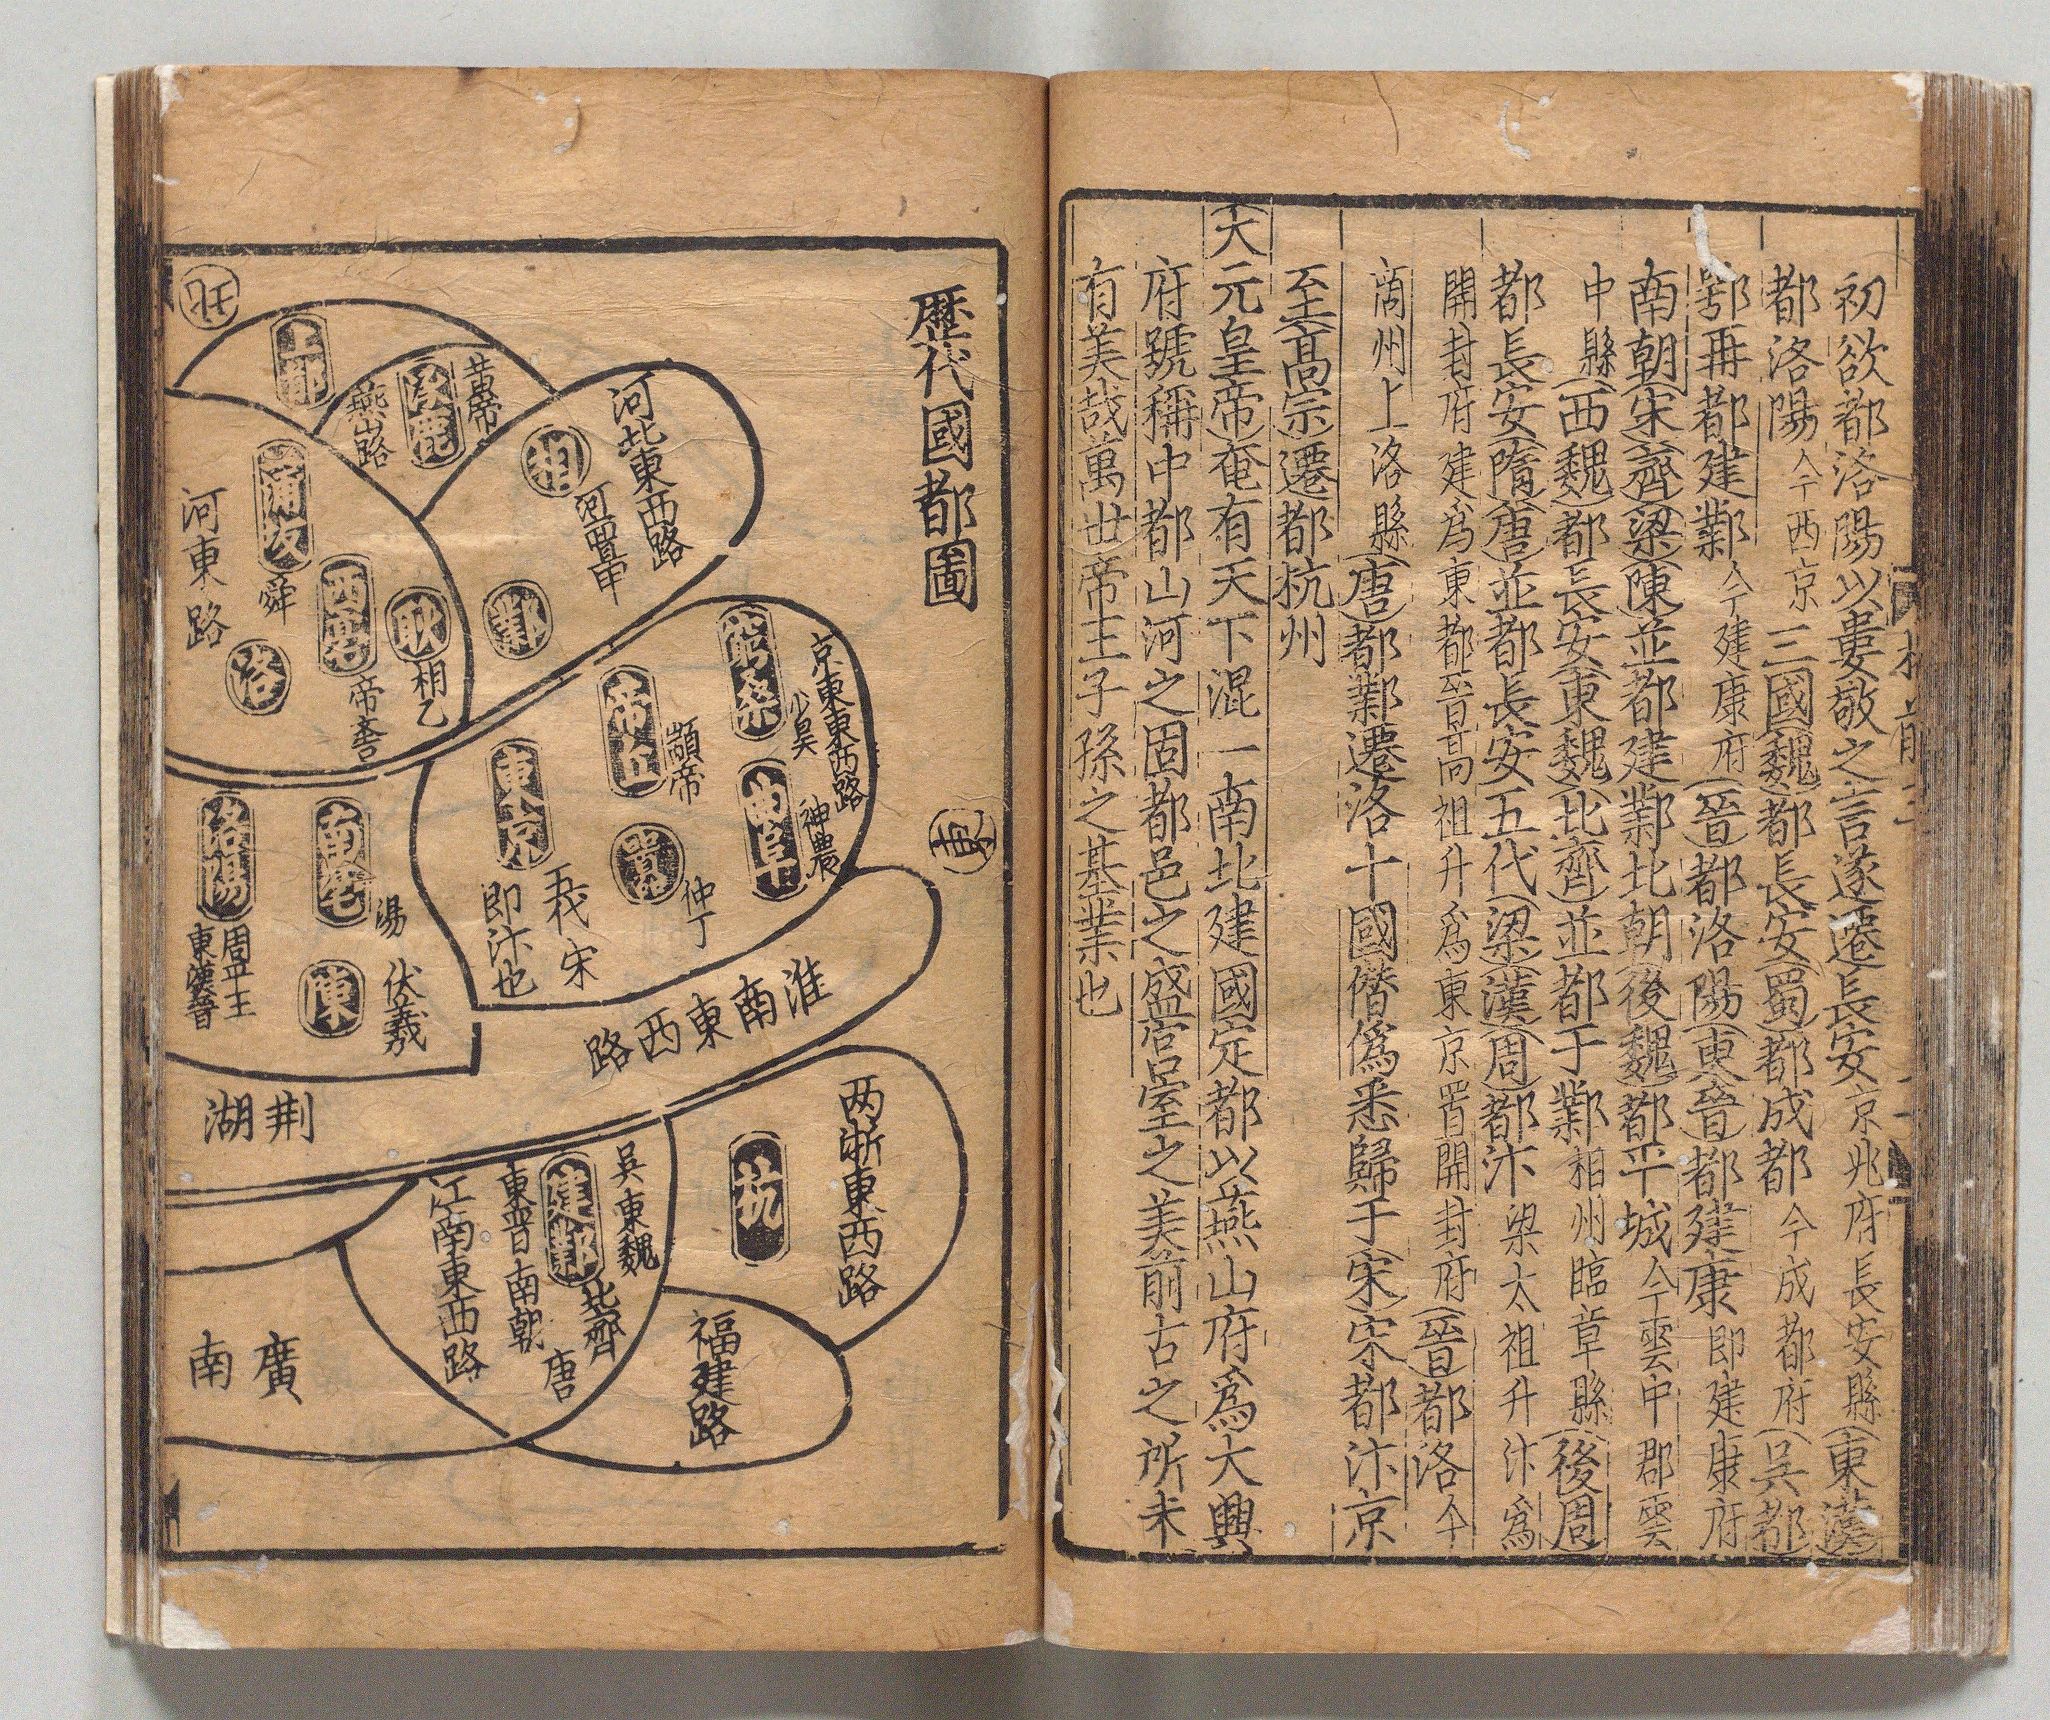 初欲都洛陽以婁敬之言遂遷長安京兆府長安縣東漢
都洛陽今西京三國魏都長安蜀都成都今成都府吳都
鄂再都建鄴今建康府晉都洛陽東晉都建康即建康府
南朝宋齊梁陳並都建鄴北朝後魏都平城今雲中郡雲
中縣西魏都長安東魏北齊並都于鄴相州臨章縣後周
都長安隋唐並都長安五代梁漢周都汴梁太祖升汴爲
開封府建爲東都晉高祖升爲東京置開封府晉都洛今
商州上洛縣唐都鄴遷洛十國僭僞悉歸于宋宋都汴京
至高宗遷都杭州
大元皇帝奄有天下混一南北建國定都以燕山府爲大興
府號稱中都山河之固都邑之盛宮室之美前古之所未
有美哉萬世帝王子孫之基業也
歷代國都圖
東
北
上都
黃帝
涿鹿
燕山路
河北東西路
相
河亶甲
鄴
蒲坂
舜
河東路
西亳
帝嚳
耿
祖乙
洛
京東東西路
窮桑
少昊
帝丘
顓帝
曲阜
神農
囂
仲丁
東京
五代宋
即汴也
南亳
湯
洛陽
周平王
東漢晉
陳
伏羲
淮南東西路
荆湖
两浙東西路
杭
吳東魏
建鄴
北齊
東晉南朝
唐
江南東西路
福建路
廣南